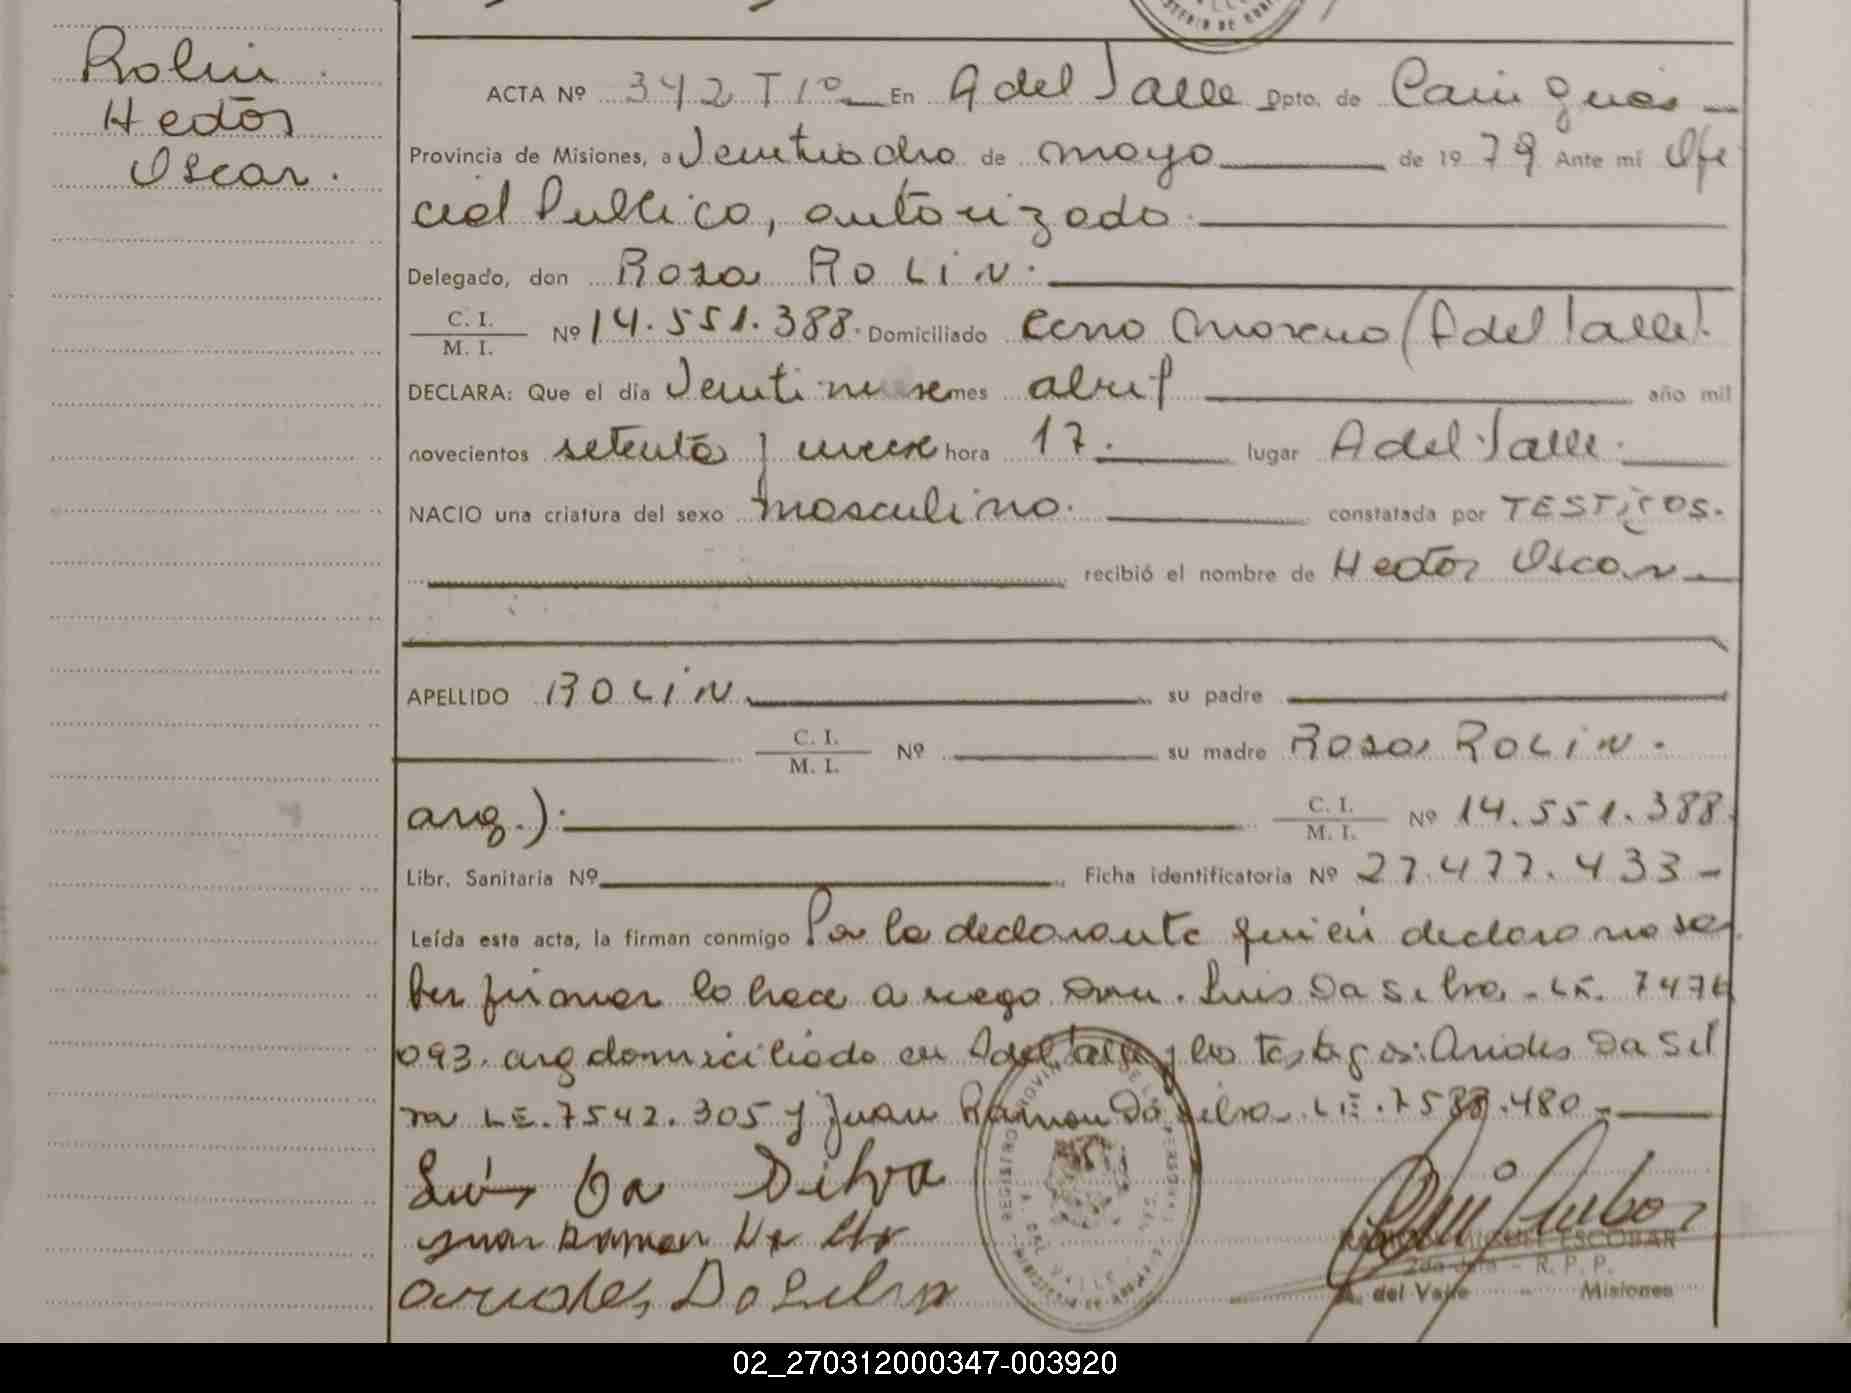 Rolin
Hector
Oscar.
ACTA Nº 342 T 1º En A del Valle Dpto. de Cainguás
Provincia de Misiones, a Veintiocho de mayo de 1979 Ante mí Ofi
cial Publico, autorizado.
Delegado, don Rosa ROLIN.
C. I.
M. I. Nº 14.551.388. Domiciliado Moreno (A del Valle).
DECLARA: Que el día Veintinueve mes abril año mil
novecientos setenta y nueve hora 17. lugar A del Valle.
NACIO una criatura del sexo masculino. constatada por TESTIGOS.
recibió el nombre de Hector Oscar
APELLIDO ROLIN su padre
C. I.
M. I. Nº su madre Rosa ROLIN.
arg.). C. I.
M. I. Nº 14.551.388.
Libr. Sanitaria Nº Ficha identificatoria Nº 27.477.433-
Leída esta acta, la firman conmigo Por la declarante quien declara no sa
ber firmar lo hace a ruego Luis Da Silva. LE. 7474
093. arg domiciliado en A del Valle y los testigos: Arides Da Sil
va LE. 7542.305 y Juan Ramon Da Silva LE. .480.-
Luis Da Silva
Juan Ramon
Arides Da Silva
REGISTRO PROVINCIAL DE LAS PERSONAS
A. DEL VALLE
MIGUEL ESCOBAR
R. P. P.
A. del Valle - Misiones
02_270312000347-003920